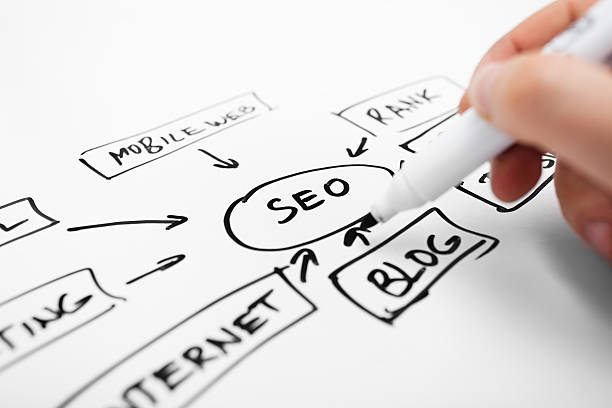 MOBILE WEB
RANK
SEO
BLOG
INTERNET